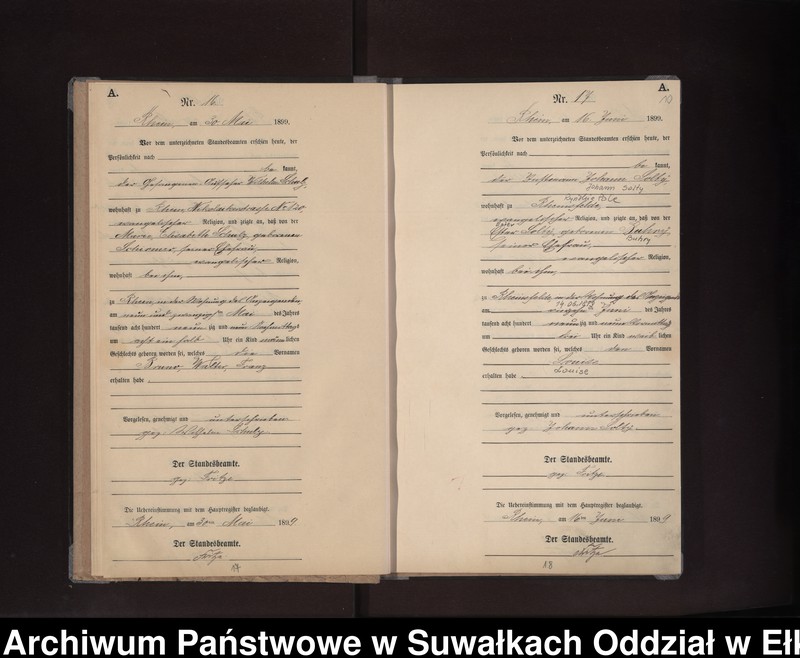 A.
Nr. 16.
Rhein, am 30 Mai 1899.
Vor dem unterzeichneten Standesbeamten erschien heute, der
Persönlichkeit nach
be kannt,
der Gefangenen-Aufseher Wilhelm Schulz,
wohnhaft zu Rhein, Nikolaikerstrasse
evangelischer Religion, und zeigte an, daß von der
Marie, Elisabeth Schulz, geborenen
seiner Ehefrau,
evangelischer Religion,
wohnhaft bei ihm,
zu Rhein, in der Wohnung des
am neun und zwanzigsten Mai des Jahres
tausend acht hundert neunzig und neun Nachmittags
um acht ein halb Uhr ein Kind männlichen
Geschlechts geboren worden sei, welches die Vornamen
Bruno, Walter, Franz
erhalten habe
Vorgelesen, genehmigt und unterschrieben
gez. Wilhelm Schulz
Der Standesbeamte.
gez.
Die Uebereinstimmung mit dem Hauptregister beglaubigt.
Rhein, am 30ten Mai 1899
Der Standesbeamte.
17
A.
Nr. 17
Rhein, am 16 Juni 1899.
Vor dem unterzeichneten Standesbeamten erschien heute, der
Persönlichkeit nach
be kannt,
der Johann Solty,
Johann Solty
wohnhaft zu Rheinsfelde,
evangelischer Religion, und zeigte an, daß von der
Ester
Ester Solty, geborenen Bubry,
Bubry
seiner Ehefrau,
evangelischer Religion,
wohnhaft bei ihm,
zu Rheinsfelde, in der Wohnung des
am Juni des Jahres
tausend acht hundert neunzig und neun Vormittags
um Uhr ein Kind weiblichen
Geschlechts geboren worden sei, welches den Vornamen
Louise
Louise
erhalten habe
Vorgelesen, genehmigt und unterschrieben
gez. Johann Solty
Der Standesbeamte.
gez.
Die Uebereinstimmung mit dem Hauptregister beglaubigt.
Rhein, am 16ten Juni 1899
Der Standesbeamte.
18
Archiwum Państwowe w Suwałkach Oddział w Ełk